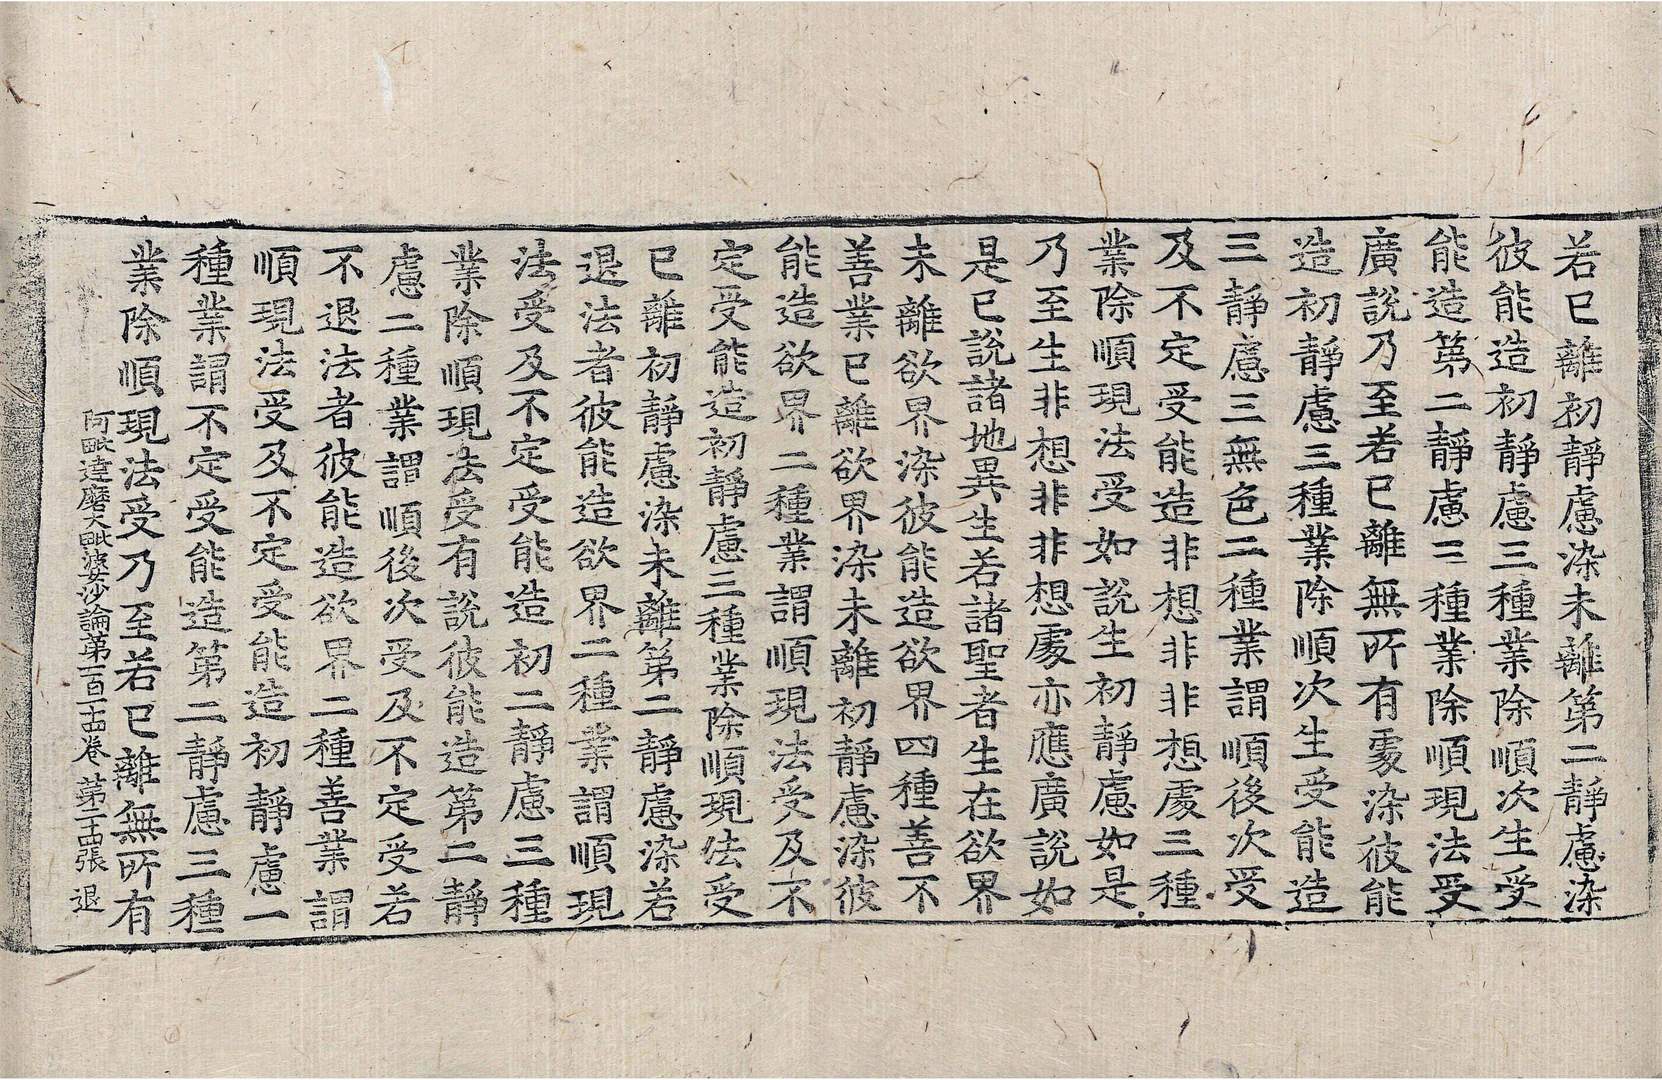 若已離初靜慮染未離第二靜慮染
彼能造初靜慮三種業除順次生受
能造第二靜慮三種業除順現法受
廣說乃至若已離無所有處染彼能
造初靜慮三種業除順次生受能造
三靜慮三無色二種業謂順後次受
及不定受能造非想非非想處三種
業除順現法受如說生初靜慮如是
乃至生非想非非想處亦應廣說如
是已說諸地異生若諸聖者生在欲界
未離欲界染彼能造欲界四種善不
善業已離欲界染未離初靜慮染彼
能造欲界二種業謂順現法受及不
定受能造初靜慮三種業除順現法受
已離初靜慮染未離第二靜慮染若
退法者彼能造欲界二種業謂順現
法受及不定受能造初二靜慮三種
業除順現法受有說彼能造第二靜
慮二種業謂順後次受及不定受若
不退法者彼能造欲界二種善業謂
順現法受及不定受能造初靜慮一
種業謂不定受能造第二靜慮三種
業除順現法受乃至若已離無所有
阿毗達磨大毗婆沙論第一百一十四卷 第二十四張 退